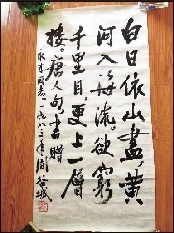 白日依山盡，黄
河入海流。欲窮
千里目，更上一層
楼。唐人句書贈
同志 一九八三年 周谷城